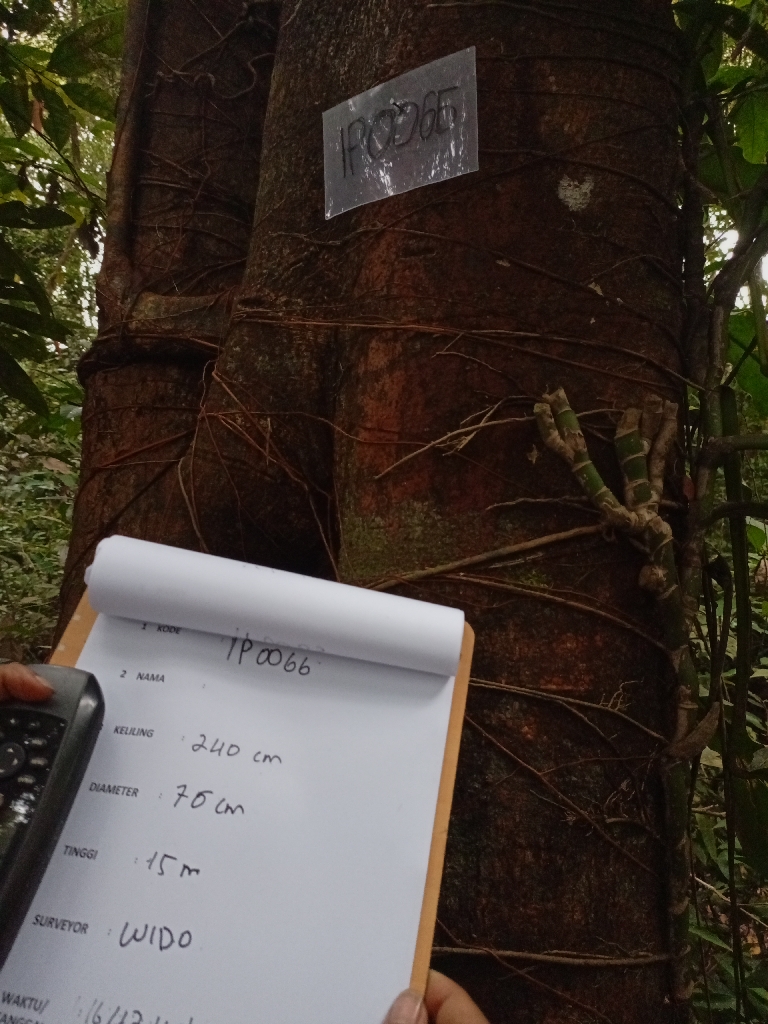 IP0066
1 KODE IP0066
2 NAMA :
KELILING : 240 cm
DIAMETER : 76 cm
TINGGI : 15 m
SURVEYOR : WIDO
WAKTU/